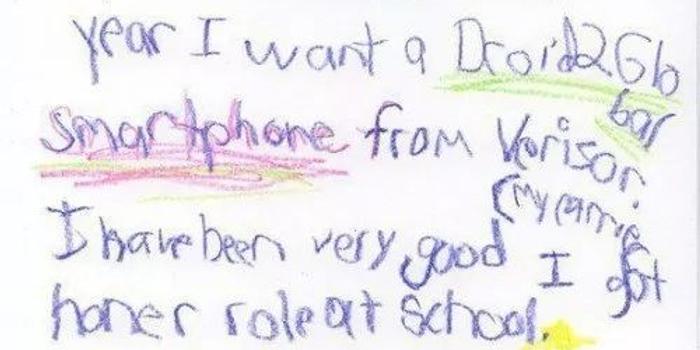 year I want a Droid2Glo
bal
smartphone from Verison.
(my carrie
I have been very good I got
honer role at school.